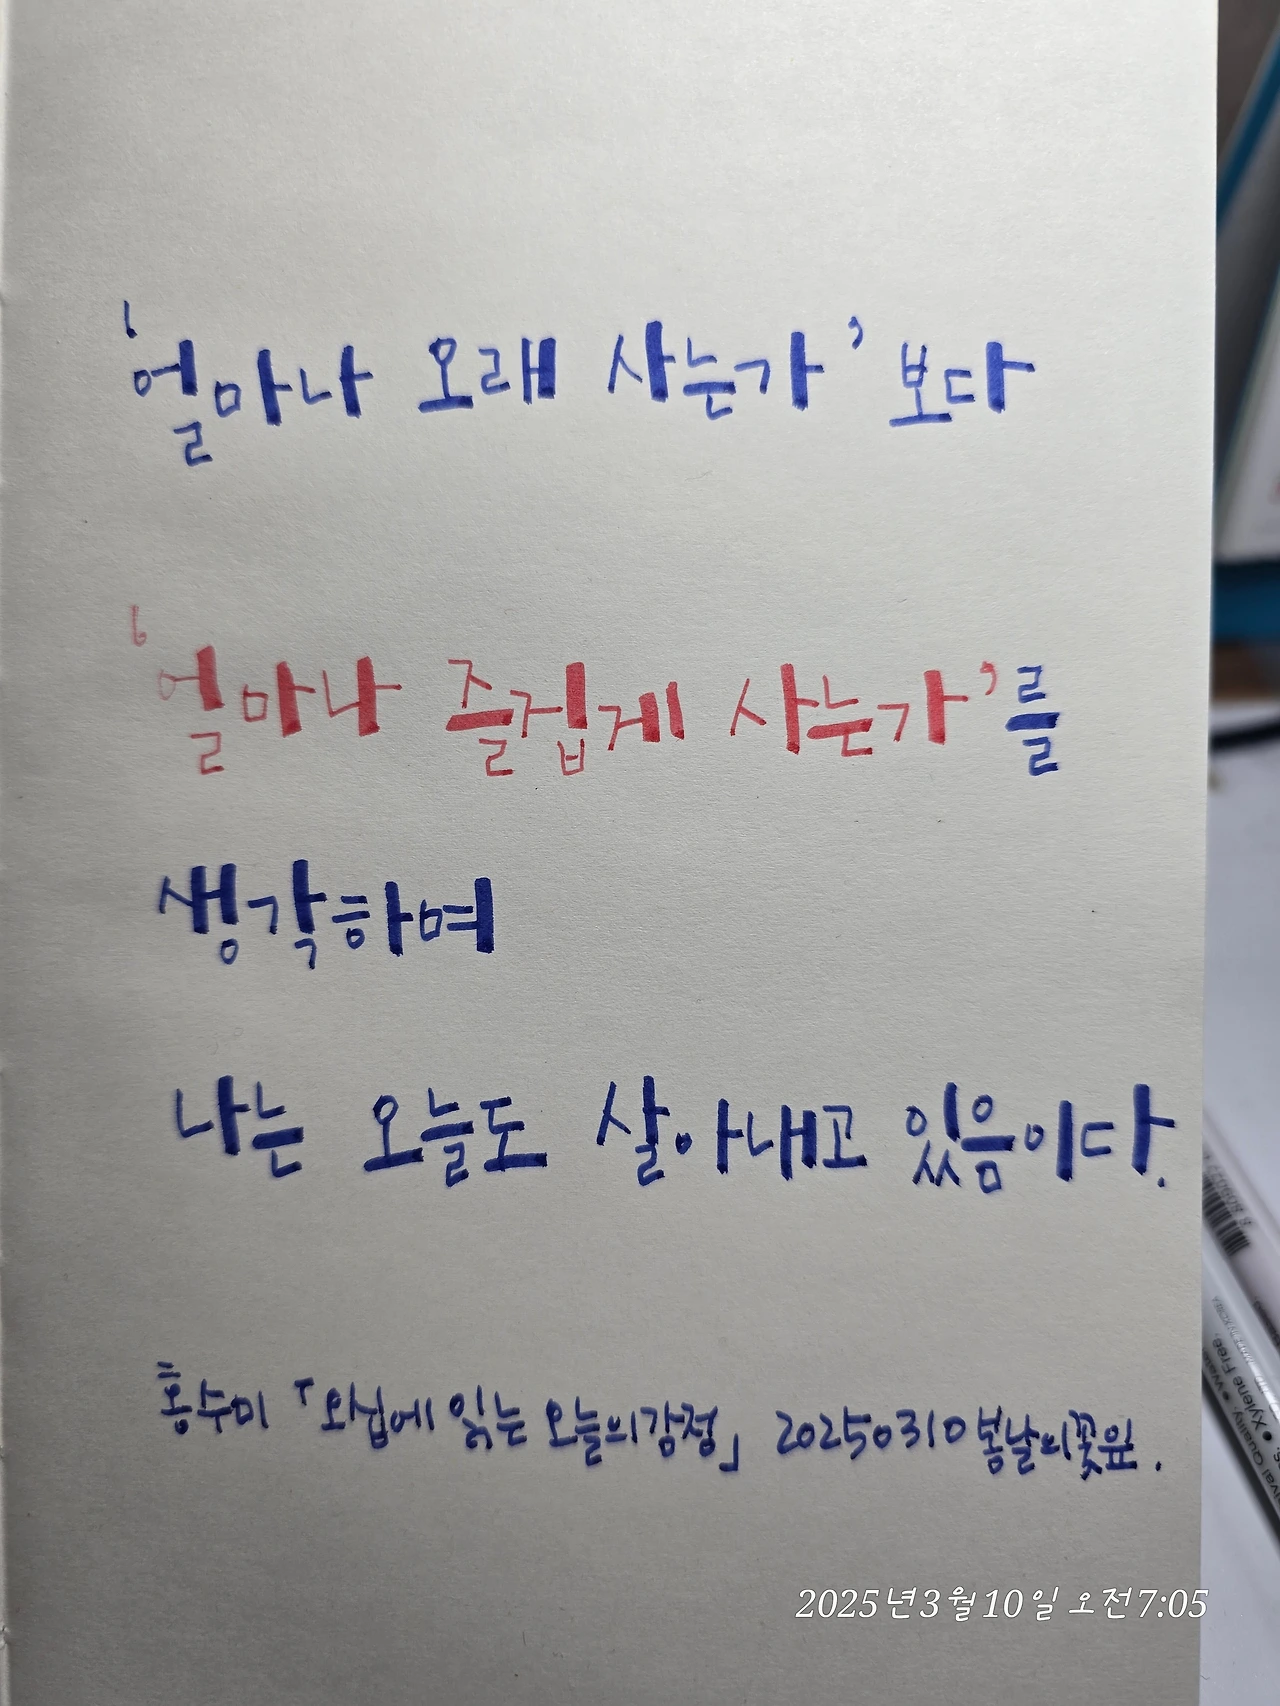 '얼마나 오래 사는가' 보다
'얼마나 즐겁게 사는가'를
생각하여
나는 오늘도 살아내고 있음이다.
홍수미 「오십에 읽는 오늘의감정」 20250310 봄날의꽃잎.
2025년3월10일 오전7:05
Xylene Free.